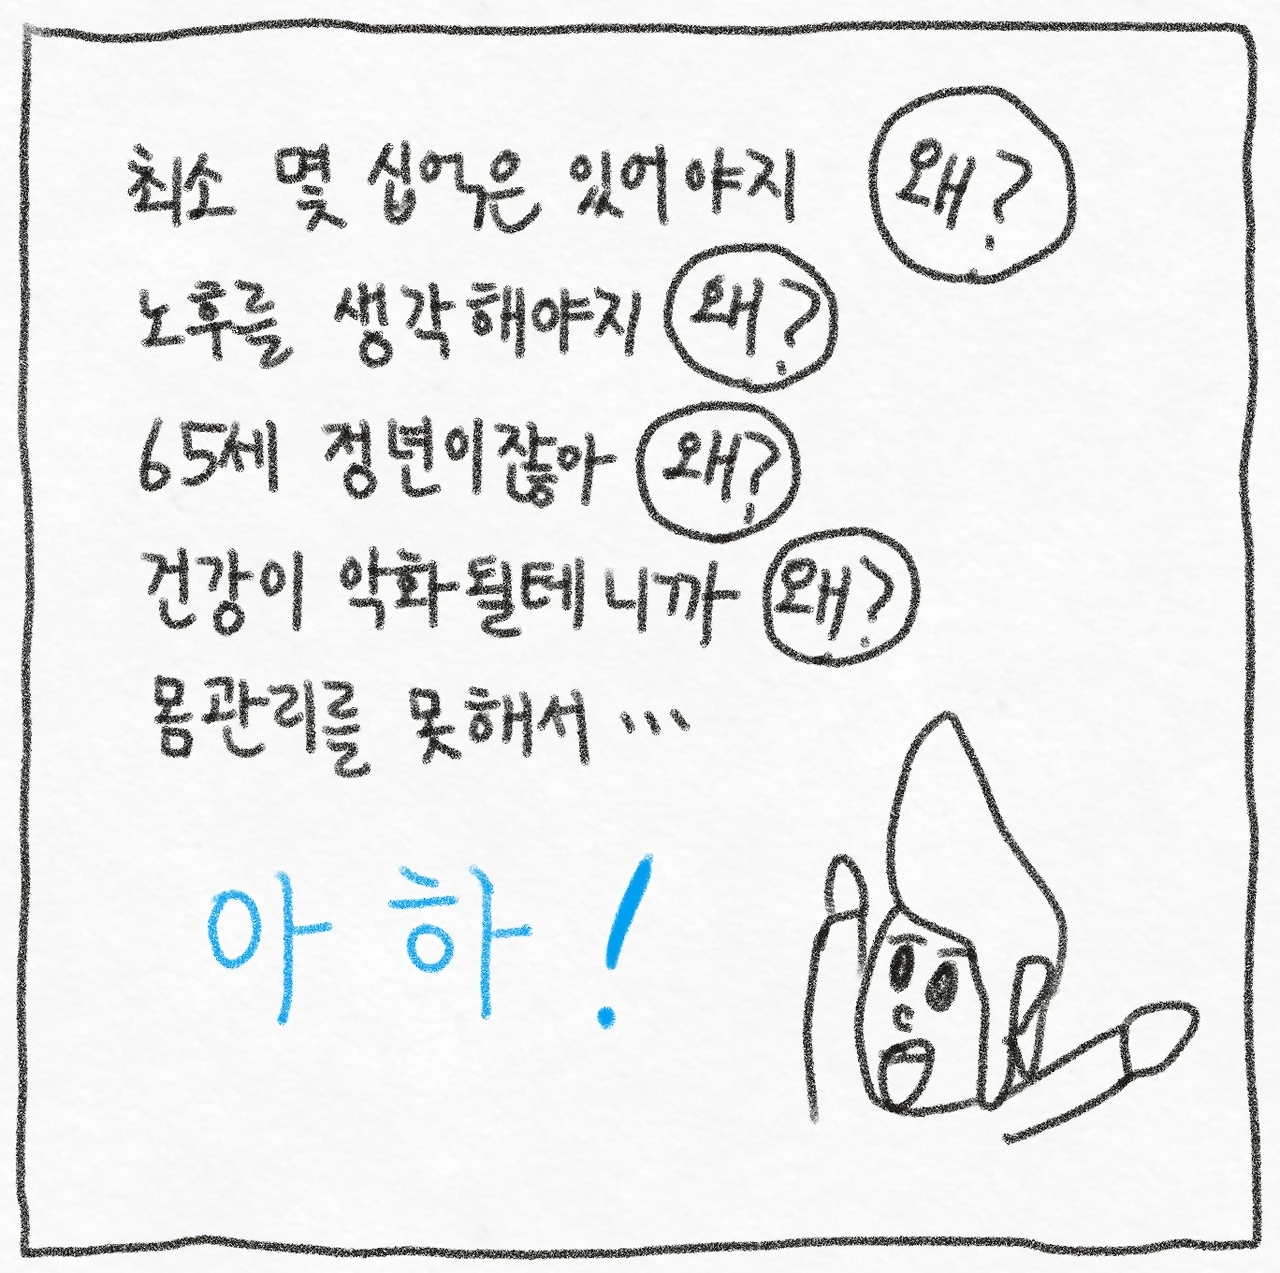 최소 몇 십억은 있어야지 왜?
노후를 생각해야지 왜?
65세 정년이잖아 왜?
건강이 악화될테니까 왜?
몸관리를 못해서 ...
아하!